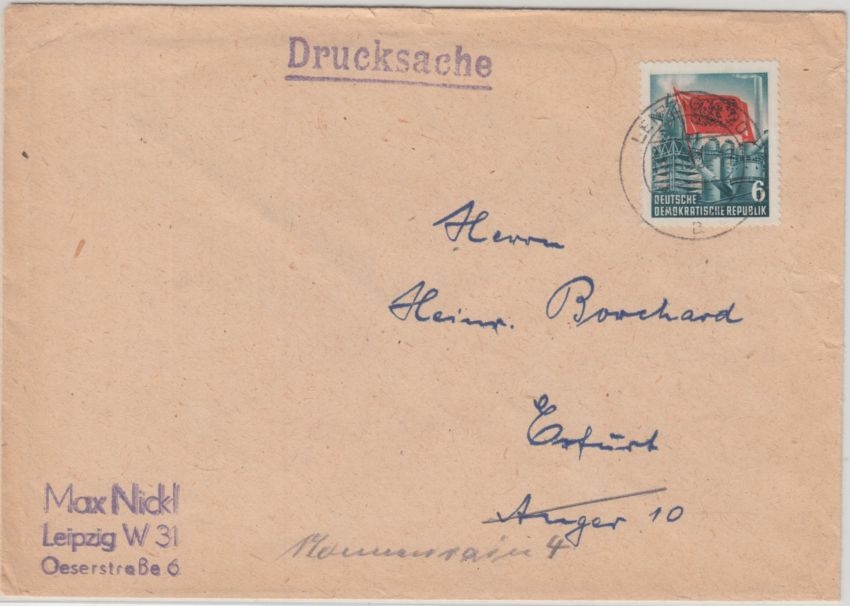 Drucksache
6
DEUTSCHE
DEMOKRATISCHE REPUBLIK
a
Herrn
Heinr. Borchard
Erfurt
Anger 10
4
Max Nickl
Leipzig W 31
Oeserstraße 6